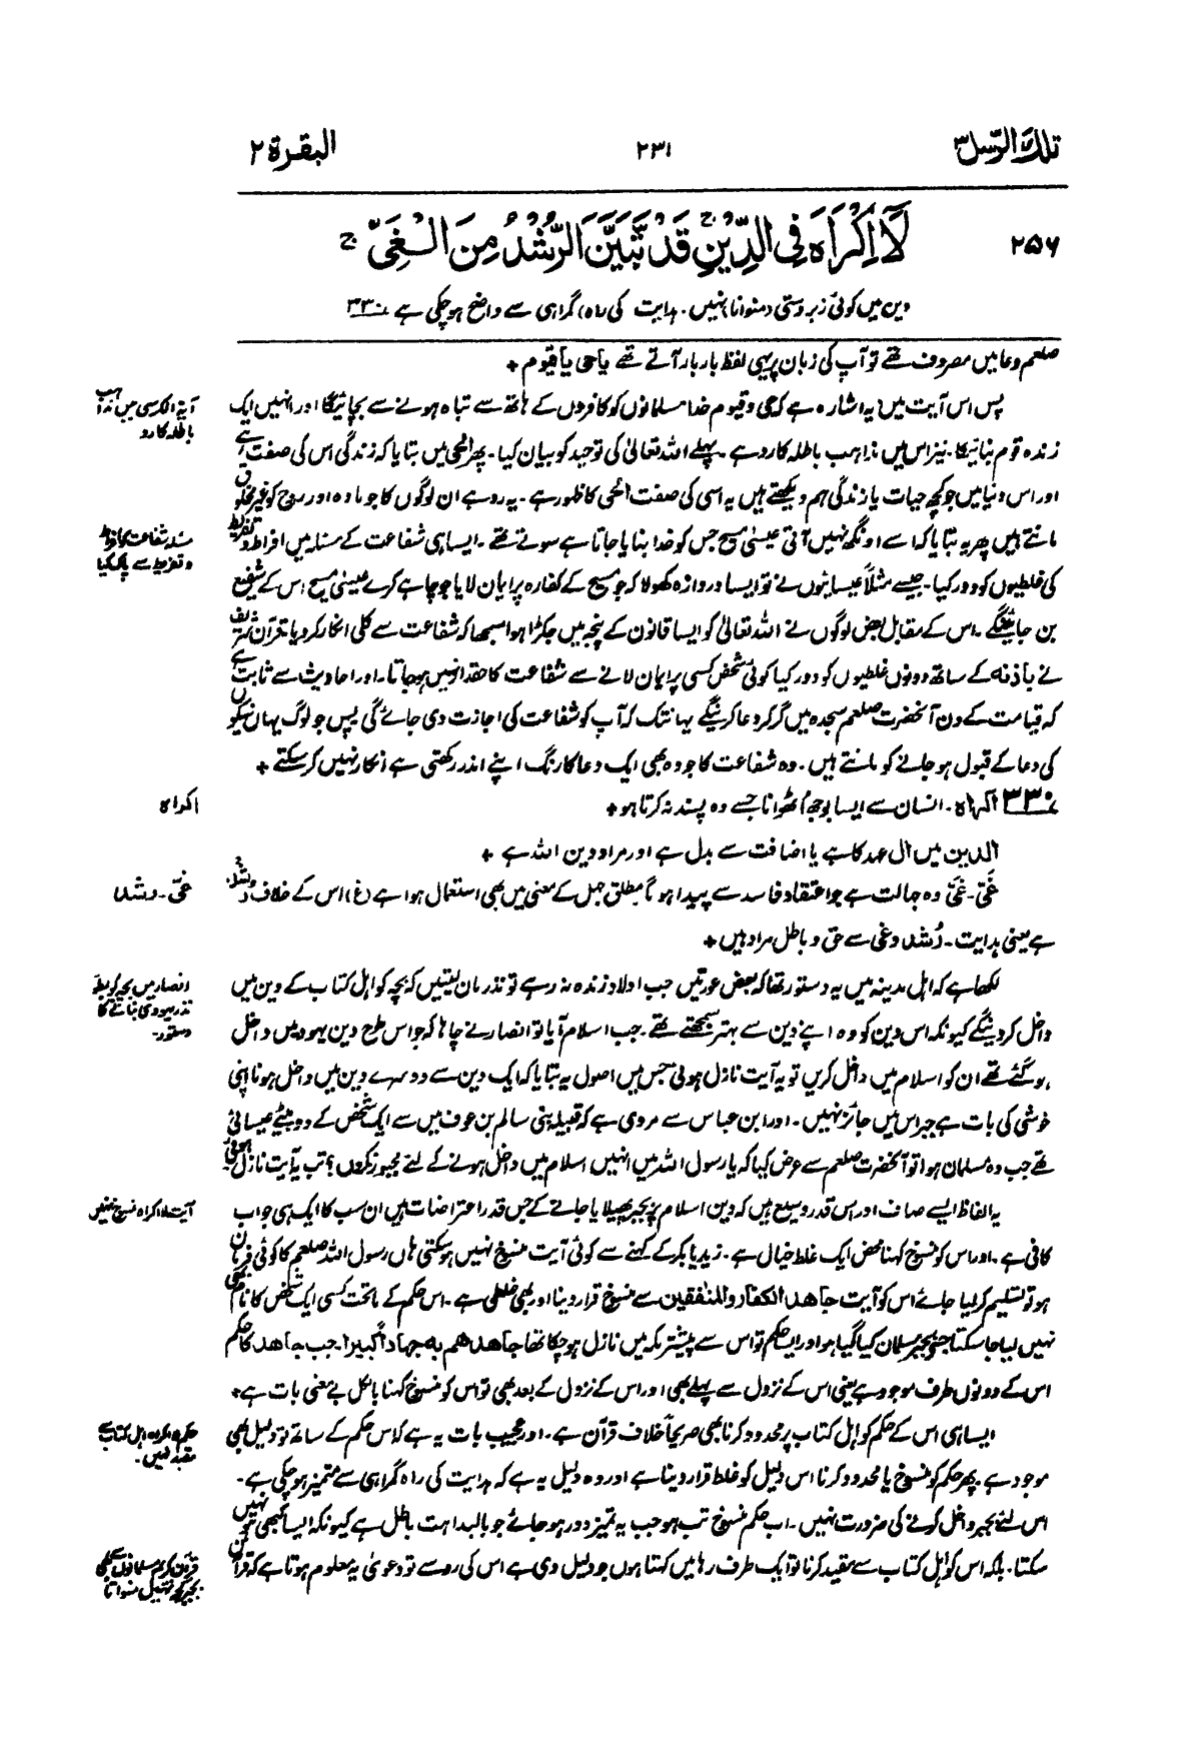 تلك الرسل ۳
۲۳۱
البقرة ۲
۲۵۶
لَآ اِكْرَاهَ فِی الدِّیْنِ ۚ قَدْ تَّبَیَّنَ الرُّشْدُ مِنَ الْغَیِّ ۚ
دین میں کوئی زبردستی (منوانا) نہیں۔ ہدایت کی راہ گمراہی سے واضح ہوچکی ہے ۳۳۰
صلعم دعا میں مصروف تھے تو آپ کی زبان پر یہی لفظ بار بار آتے تھے یا حی یا قیوم +
پس اس آیت میں یہ اشارہ ہے کہ حی و قیوم خدا مسلمانوں کو کافروں کے ہاتھ سے تباہ ہونے سے بچائیگا اور انہیں ایک
آیۃ الکرسی میں مذاہب
باطلہ کا رد
زندہ قوم بنائیگا۔ نیز اس میں مذاہب باطلہ کا رد ہے۔ پہلے اللہ تعالیٰ کی توحید کو بیان کیا۔ پھر الحی میں بتایا کہ زندگی اس کی صفت ہے
اور اس دنیا میں جو کچھ حیات یا زندگی ہم دیکھتے ہیں یہ اسی کی صفت الحی کا ظہور ہے۔ یہ رد ہے ان لوگوں کا جو مادہ اور روح کو غیر مخلوق
مانتے ہیں پھر یہ بتایا کہ اسے اونگھ نہیں آتی عیسیٰ مسیح جس کو خدا بنایا جاتا ہے سوتے تھے۔ ایسا ہی شفاعت کے مسئلہ میں افراط و تفریط
مسئلہ شفاعت کا افراط
و تفریط سے پاک کیا
کی غلطیوں کو دور کیا۔ جیسے مثلاً عیسائیوں نے تو ایسا دروازہ کھولا کہ جو مسیح کے کفارہ پر ایمان لایا جو چاہے کرے عیسیٰ مسیح اس کے شفیع
بن جائینگے۔ اس کے مقابل بعض لوگوں نے اللہ تعالیٰ کو ایسا قانون کے پنجہ میں جکڑا ہوا سمجھا کہ شفاعت سے کلی انکار کر دیا قرآن شریف
نے باذنہ کے ساتھ دونوں غلطیوں کو دور کیا کوئی شخص کسی پر ایمان لانے سے شفاعت کا حقدار نہیں ہوجاتا۔ اور احادیث سے ثابت ہے
کہ قیامت کے دن آنحضرت صلعم سجدہ میں گر کر دعا کرینگے یہانتک کہ آپ کو شفاعت کی اجازت دی جائے گی پس جو لوگ یہاں نیکوں
کی دعا کے قبول ہوجانے کو مانتے ہیں۔ وہ شفاعت کا جو وہ بھی ایک دعا کا رنگ اپنے اندر رکھتی ہے انکار نہیں کر سکتے +
۳۳۰ اکراہ۔ انسان سے ایسا بوجھ اٹھوانا جسے وہ پسند نہ کرتا ہو +
اکراہ
الدین میں ال عہد کا ہے یا اضافت سے بدل ہے اور مراد دین اللہ ہے +
غَیّ۔ غَیّ وہ جہالت ہے جو اعتقاد فاسد سے پیدا ہو گا مطلق جہل کے معنی میں بھی استعمال ہوا ہے (غ) اس کے خلاف رشد
غیّ۔ رشد
ہے یعنی ہدایت۔ رُشد و غی سے حق و باطل مراد ہیں +
لکھا ہے کہ اہل مدینہ میں یہ دستور تھا کہ بعض عورتیں جب اولاد زندہ نہ رہے تو نذر مان لیتیں کہ بچہ کو اہل کتاب کے دین میں
انصار میں بچہ کو بطور
نذر یہودی بنانے کا
دستور۔
داخل کر دینگے کیونکہ اس دین کو وہ اپنے دین سے بہتر سمجھتے تھے۔ جب اسلام آیا تو انصار نے چاہا کہ جو اس طرح دین یہود میں داخل
ہو گئے تھے ان کو اسلام میں داخل کریں تو یہ آیت نازل ہوئی جس میں اصول یہ بتایا کہ ایک دین سے دوسرے دین میں داخل ہونا اپنی
خوشی کی بات ہے جبر اس میں جائز نہیں۔ اور ابن عباس سے مروی ہے کہ قبیلہ بنی سالم بن عوف میں سے ایک شخص کے دو بیٹے عیسائی
تھے جب وہ مسلمان ہوا تو آنحضرت صلعم سے عرض کیا کہ یا رسول اللہ میں انہیں اسلام میں داخل ہونے کے لئے مجبور نہ کروں؟ تب یہ آیت نازل ہوئی
یہ الفاظ ایسے صاف اور اس قدر وسیع ہیں کہ دین اسلام پر بجبر پھیلایا جانے کے جس قدر اعتراضات ہیں ان سب کا ایک ہی جواب
آیت لا اکراہ منسوخ نہیں
کافی ہے۔ اور اس کو منسوخ کہنا محض ایک غلط خیال ہے۔ زید یا بکر کے کہنے سے کوئی آیت منسوخ نہیں ہو سکتی ہاں رسول اللہ صلعم کا کوئی فرمان
ہو تو تسلیم کر لیا جائے اس کو آیت جاهد الكفار والمنٰفقين سے منسوخ قرار دینا اور بھی غلطی ہے۔ اس حکم کے ماتحت کسی ایک شخص کا نام بھی
نہیں لیا جا سکتا جو بجبر مسلمان کیا گیا ہو اور ایسا حکم تو اس سے پیشتر مکہ میں نازل ہو چکا تھا جاهدهم به جهادا كبيرا۔ جب جاهد کا حکم
اس کے دونوں طرف موجود ہے یعنی اس کے نزول سے پہلے بھی اور اس کے نزول کے بعد بھی تو اس کو منسوخ کہنا بالکل بے معنی بات ہے +
ایسا ہی اس کے حکم کو اہل کتاب پر محدود کرنا بھی صریحاً خلاف قرآن ہے۔ اور عجیب بات یہ ہے کہ اس حکم کے ساتھ تو دلیل بھی
اہل کتاب سے
مقید نہیں۔
موجود ہے پھر حکم کو منسوخ یا محدود کرنا اس دلیل کو غلط قرار دینا ہے اور وہ دلیل یہ ہے کہ ہدایت کی راہ گمراہی سے متمیز ہو چکی ہے۔
اس لئے بجبر داخل کرنے کی ضرورت نہیں۔ اب حکم منسوخ تب ہو جب یہ تمیز دور ہو جائے جو بالبداہت باطل ہے کیونکہ ایسا کبھی ہو نہیں
سکتا۔ بلکہ اس کو اہل کتاب سے مقید کرنا تو ایک طرف رہا میں کہتا ہوں جو دلیل دی ہے اس کی رو سے تو دعویٰ یہ معلوم ہوتا ہے کہ قرآن